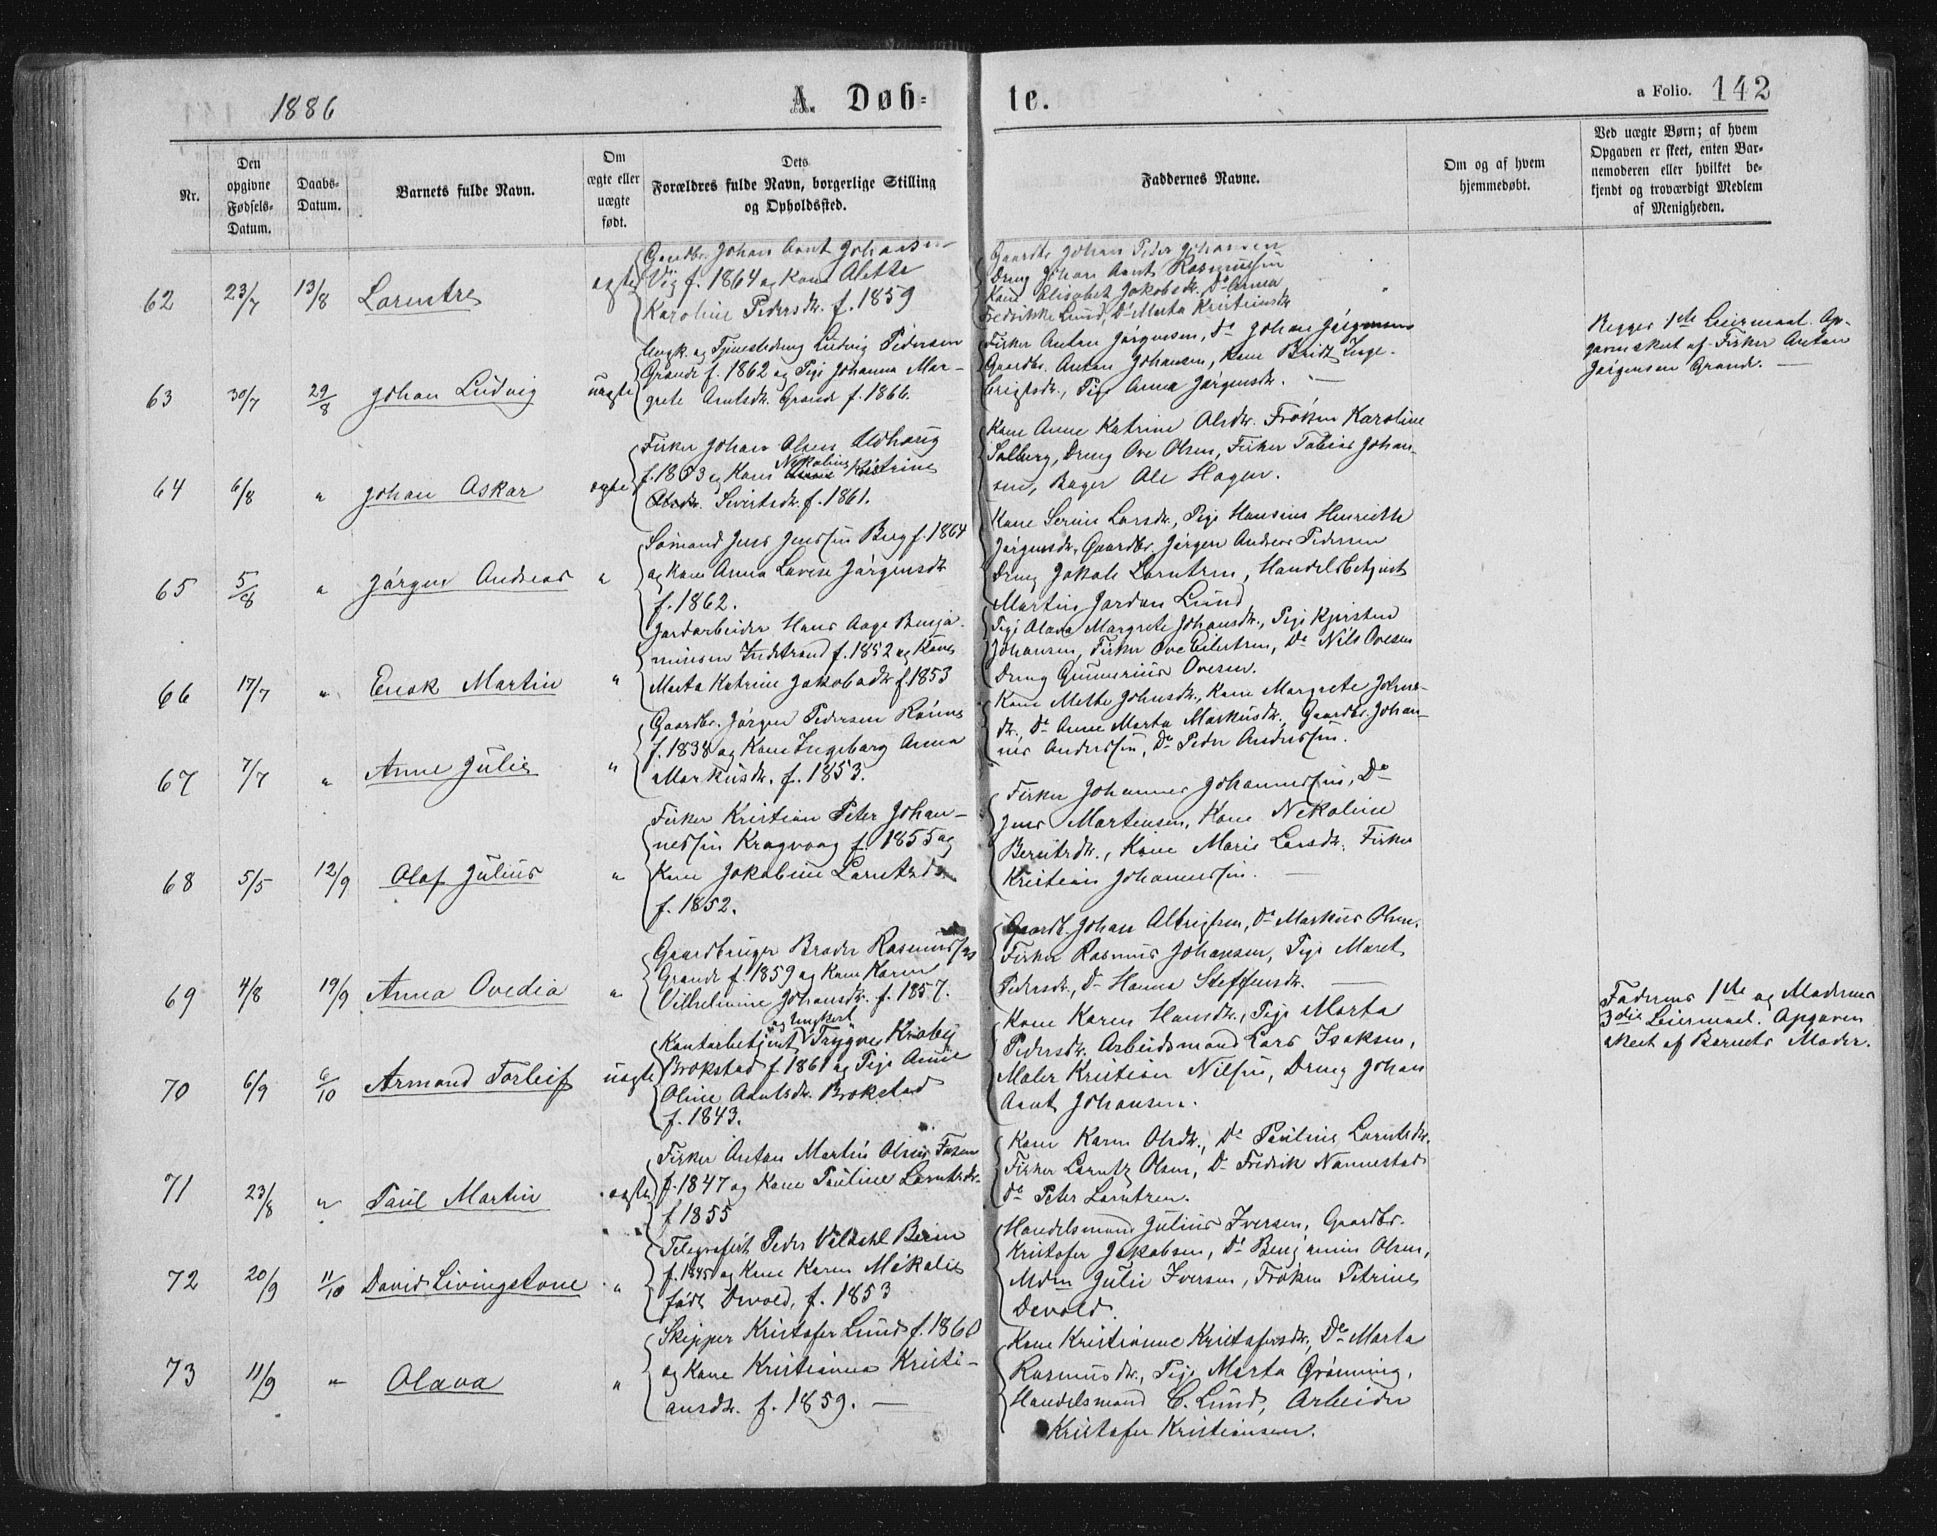 1886
A. Døb-
te.
a Folio. 142
Nr.
Den opgivne Fødsels-Datum.
Daabs-Datum.
Barnets fulde Navn.
Om ægte eller uægte født.
Dets Forældres fulde Navn, borgerlige Stilling og Opholdssted.
Faddernes Navne.
Om og af hvem hjemmedøbt.
Ved uægte Børn; af hvem Opgaven er skeet, enten Barnemoderen eller hvilket bekjendt og troværdigt Medlem af Menigheden.
62 23/7 13/8 Lorentze ægte
Gaardbr. Johan Arnt Johansen
Vig f. 1864 og Kone Alette
Karoline Pedersdr. f. 1859
Gaardbr Johan Peder Johansen
Dreng Johan Arnt Rasmussen
Kone Elisabet Jakobsdr. Do Anna
Fredrikke Lund, Do Marta Kristensdr
63 30/7 29/8 Johan Ludvig uægte
Ungk. og Tjenestedreng Ludvig Pedersen
Grande f. 1862 og Pige Johanna Mar-
grete Arntsdr. Grande f. 1866.
Fisker Anton Jørgensen, Do Johan Jørgensen
Gaardbr. Anton Johansen, Kone Berit Inge-
brigtsdr., Pige Anna Jørgensdr. —
Begges 1ste Leiermaal. Op-
gaven skeet af Fisker Anton
Jørgensen Grande. —
64 6/8 " Johan Askar ægte
Fisker Johan Olsen Udhaug
f. 1853 og Kone Nekoline Katrine
Olsdr. Sivertsdr. f. 1861.
Kone Anne Katrine Olsdr. Frøken Karoline
Solberg, Dreng Ove Olsen, Fisker Tobias Johan-
sen, Bager Ole Hagen.
65 5/8 " Jørgen Andreas "
Sømand Jens Jenssen Berg f. 1864
og Kone Anna Lovise Jørgensdr
f. 1862.
Kone Serine Larsdr, Pige Hansine Henriette
Jørgensdr. Gaardbr. Jørgen Andreas Pedersen
Dreng Jakob Lorntsen, Handelsbetjent
Martin Jordan Lund
66 17/7 " Enok Martin "
Jordarbeider Hans Aage Benja-
minsen Indstrand f. 1852 og Kone
Marta Katrine Jakobsdr f. 1853
Pige Olava Margrete Johansdr., Pige Kjersten
Johansen, Fisker Ove Eilertsen, Do Nils Ovesen
Dreng Gunnerius Ovesen.
67 7/7 " Anne Julie "
Gaardbr. Jørgen Pedersen Rønne
f. 1838 og Kone Ingeborg Anna
Markusdr. f. 1853.
Kone Mette Johnsdr., Kone Margrete Johns-
dr., Do Anne Marta Markusdr., Gaardbr. Johan-
nes Anderssen, Do Peder Anderssen.
68 5/5 12/9 Olaf Julius "
Fisker Kristian Peter Johan-
nessen Kragvaag f. 1855 og
Kone Jokobine Lorntsdr.
f. 1852.
Fisker Johannes Johannessen, Do
Jens Martinsen, Kone Nekoline
Berntsdr., Kone Marie Larsdr. Fisker
Kristian Johannessen. —
69 4/8 19/9 Anna Ovedia "
Gaardbruger Broder Rasmussen
Grande f. 1859 og Kone Karen
Vilhelmine Johansdr. f. 1857.
Gaardb. Johan Altrigtsen, Do Markus Olsen.
Fisker Rasmus Johansen, Pige Maret
Pedersdr., Do Hanna Steffensdr. —
70 6/9 6/10 Armand Torleif uægte
Kontorbetjent og Ungkarl Trygve Kroby
Brokstad f. 1861 og Pige Anne
Oline Arntsdr. Brokstad
f. 1843.
Kone Karen Hansdr., Pige Marta
Pedersdr. Arbeidsmand Lars Isaksen,
Maler Kristian Nilsen, Dreng Johan
Arnt Johansen.
Faderens 1ste og Moderens
3die Leiermaal. Opgaven
skeet af Barnets Moder.
71 23/8 " Paul Martin ægte
Fisker Anton Martin Olsen
f. 1847 og Kone Pauline Lorntsdr.
f 1855
Kone Karen Olsdr., Do Pauline Lorntsdr.
Fisker Lorntz Olsen, Do Fredrik Nannestad
Do Peter Lorntzen.
72 20/9 11/10 David Livingstone "
Telegrafist Peder
f. 1845 og Kone Karen Mekalie
født Devold, f. 1853
Handelsmand Julius Iversen, Gaardbr.
Kristofer Jakobsen, Do Benjamin Olsen,
Mdm Julie Iversen, Frøken Petrine
Devold.
73 11/9 " Olava "
Skipper Kristofer Lund f. 1860
og Kone Kristianna Kristi-
ansdr. f. 1859. —
Kone Kristianne Kristofersdr., Do Marta
Rasmusdr., Pige Marta Grønning,
Handelsmand C. Lund, Arbeider
Kristofer Kristiansen.